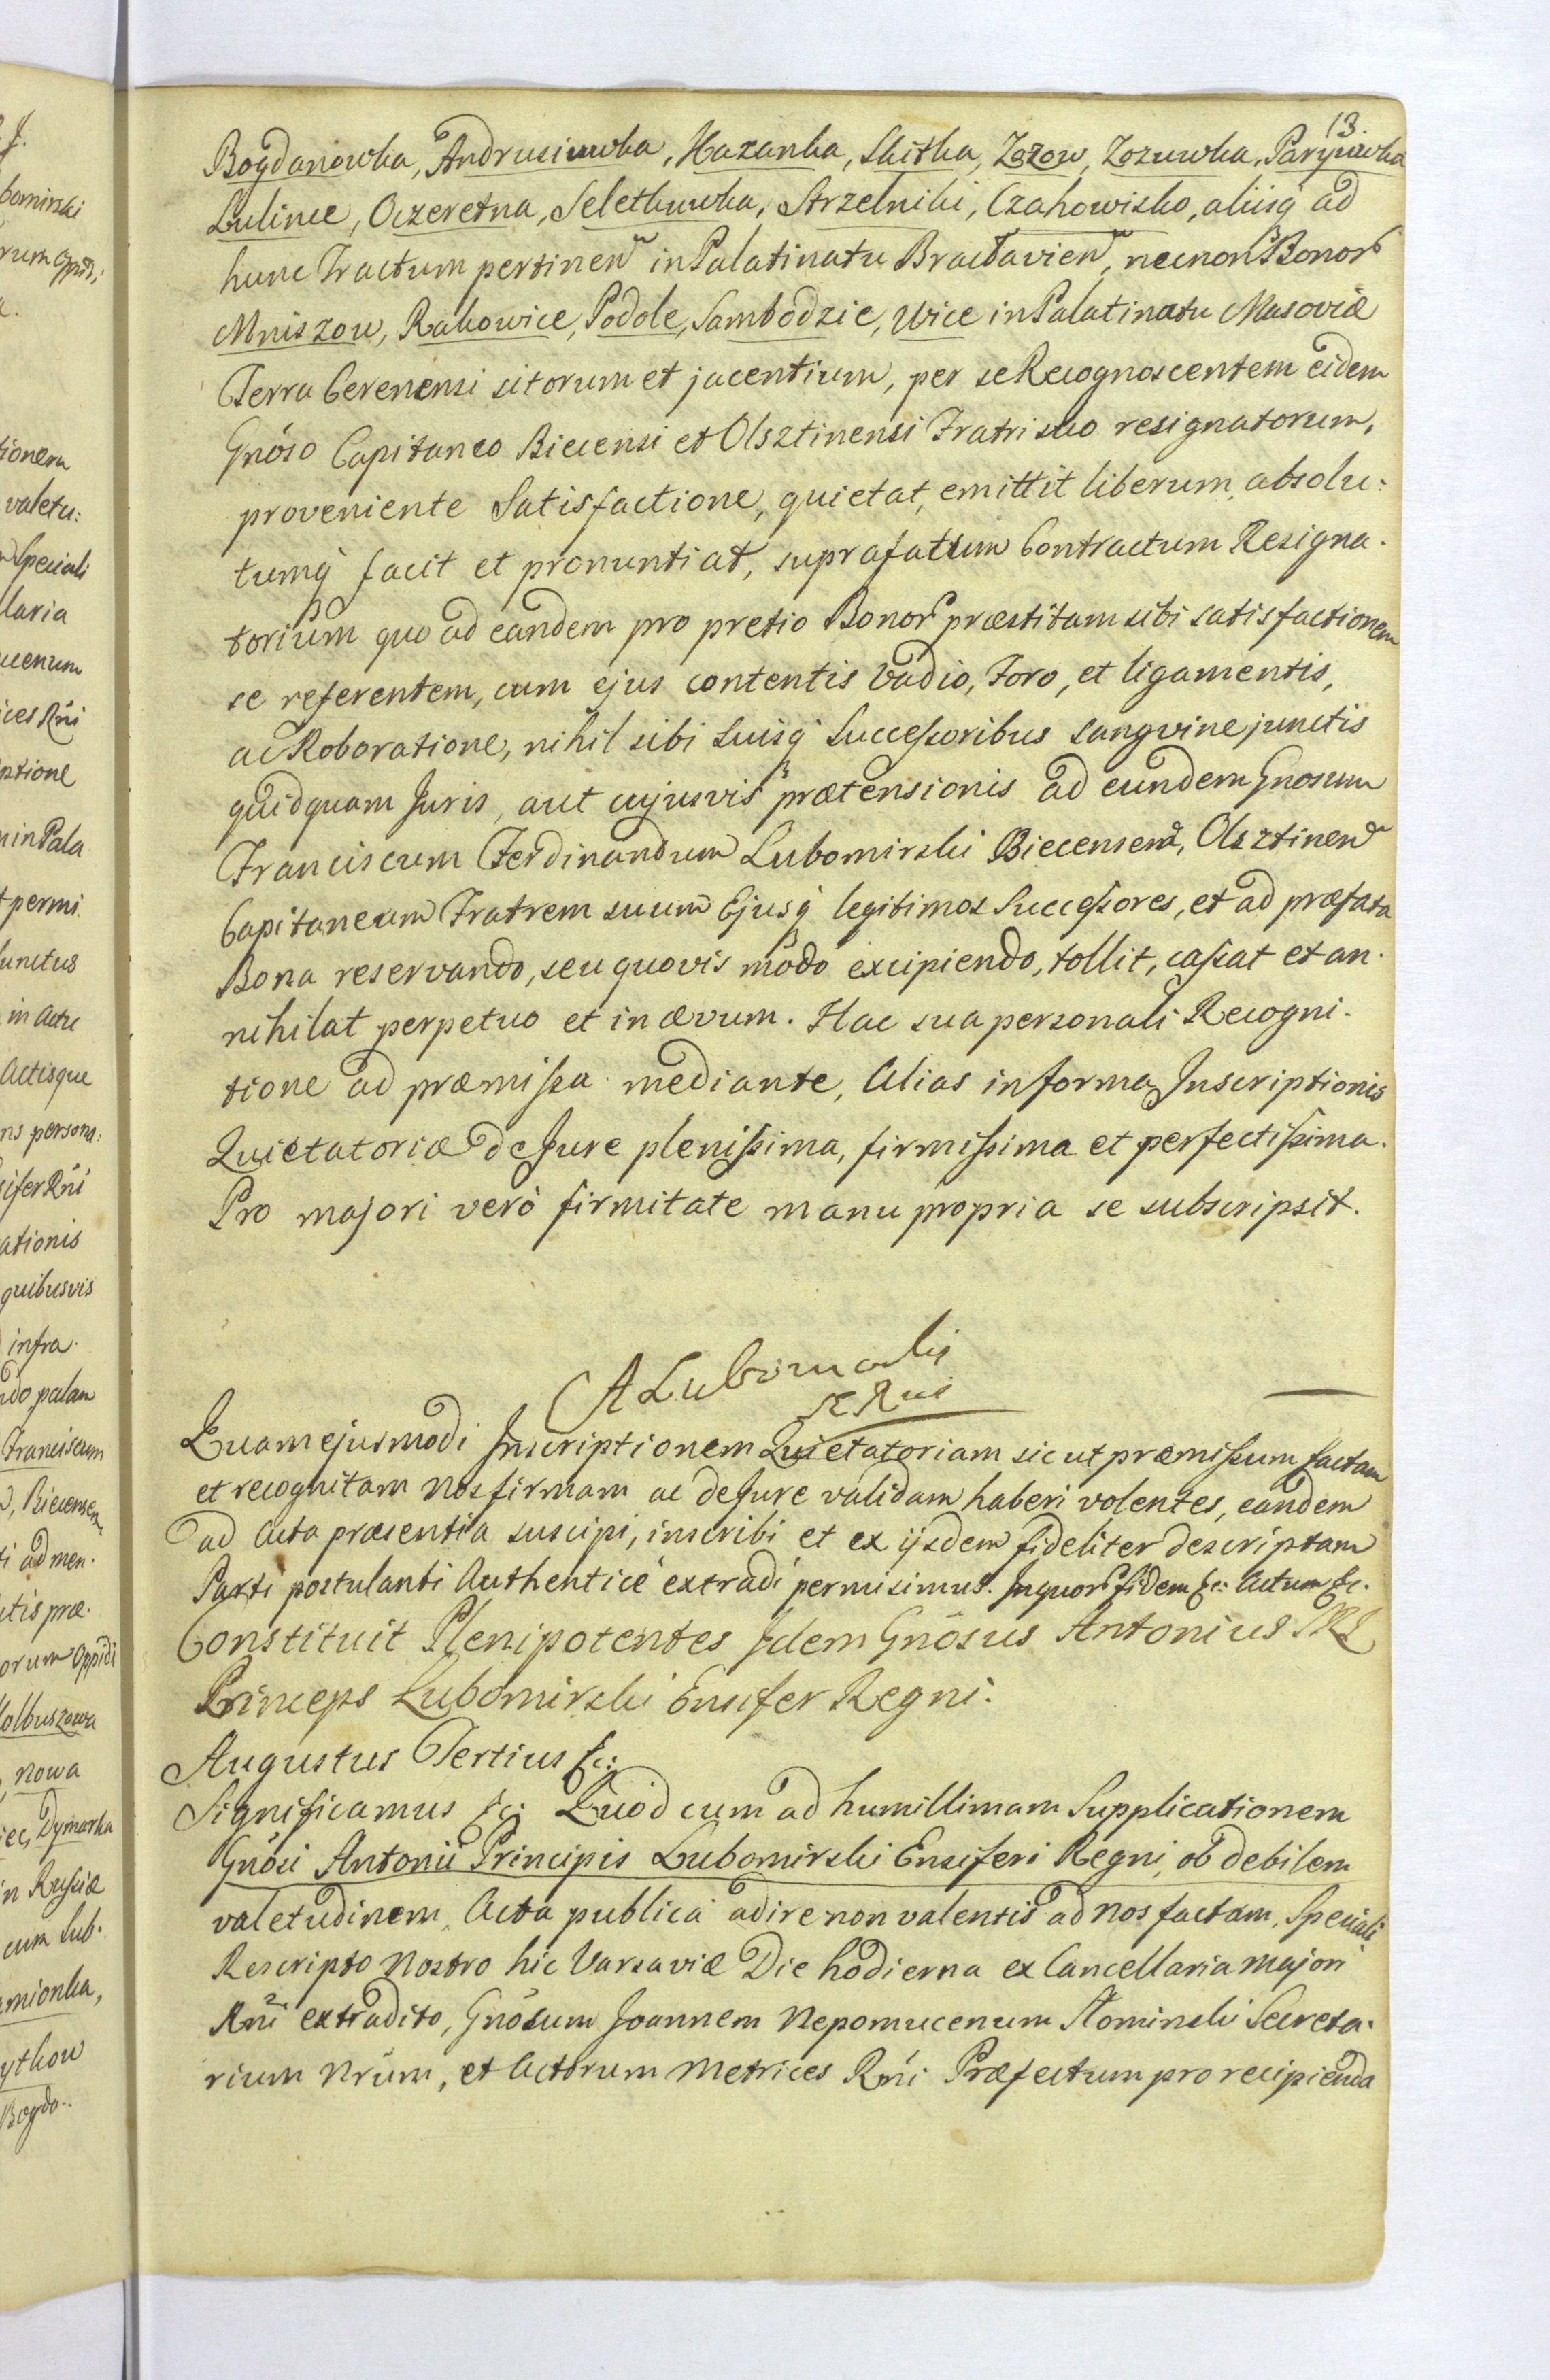 13.
Bogdanowka, Andrusiuwka, Hazanka, Skitka, Zozow, Zozuwka, Paryiuwka
Lulince, Oczeretna, Seletkuwka, Strzelniki, Czahowisko, aliisq ad
hunc Tractum pertinen in Palatinatu Braclavien, necnon Bonor
Mniszow, Rakowice, Podole, Sambodzie, Wice in Palatinatu Masoviæ
Terra Cerenensi sitorum et jacentium, per se Recognoscentem eidem
Gnoso Capitaneo Biecensi et Olsztinensi Fratri suo resignatorum,
proveniente Satisfactione, quietat, emittit liberum, absolu:
tumq facit et pronuntiat, suprafatum Contractum Resigna-
torium quo ad eandem pro pretio Bonor præstitam sibi satisfactionem
se referentem, cum ejus contentis Vadio, Foro, et ligamentis,
ac Roboratione, nihil sibi suisq Successoribus sangvine junctis
quidquam Juris, aut cujusvis prætensionis ad eundem Gnosum
Franciscum Ferdinandum Lubomirski Biecensem, Olsztinen
Capitaneum Fratrem suum Ejusq legitimos Successores, et ad præfata
Bona reservando, seu quovis modo excipiendo, tollit, cassat et an-
nihilat perpetuo et in ævum. Hac sua personali Recogni-
tione ad præmissa mediante, Alias in forma Inscriptionis
Quietatoriæ de Jure plenissima, firmissima et perfectissima.
Pro majori verò firmitate manu propria se subscripsit.
A Lubomirski
Quam ejusmodi Inscriptionem Quietatoriam sicut præmissum factam
et recognitam Nos firmam ac de Jure validam haberi volentes, eandem
ad Acta præsentia suscipi, inscribi et ex ijsdem fideliter descriptam
Parti postulanti Authenticè extradi permisimus. In quor fidem &c: Actum &c.
Constituit Plenipotentes Idem Gnosus Antonius SRI
Princeps Lubomirski Ensifer Regni.
Augustus Tertius &c:
Significamus &c: Quod cum ad humillimam Supplicationem
Gnosi Antonii Principis Lubomirski Ensiferi Regni, ob debilem
valetudinem, Acta publica adire non valentis ad nos factam, Speciali
Rescripto Nostro hic Varsaviæ Die hodierna ex Cancellaria Majori
Rni extradito, Gnosum Joannem Nepomucenum Slominski Secreta-
rium Nrum, et Actorum Metrices Rni Præfectum pro recipienda